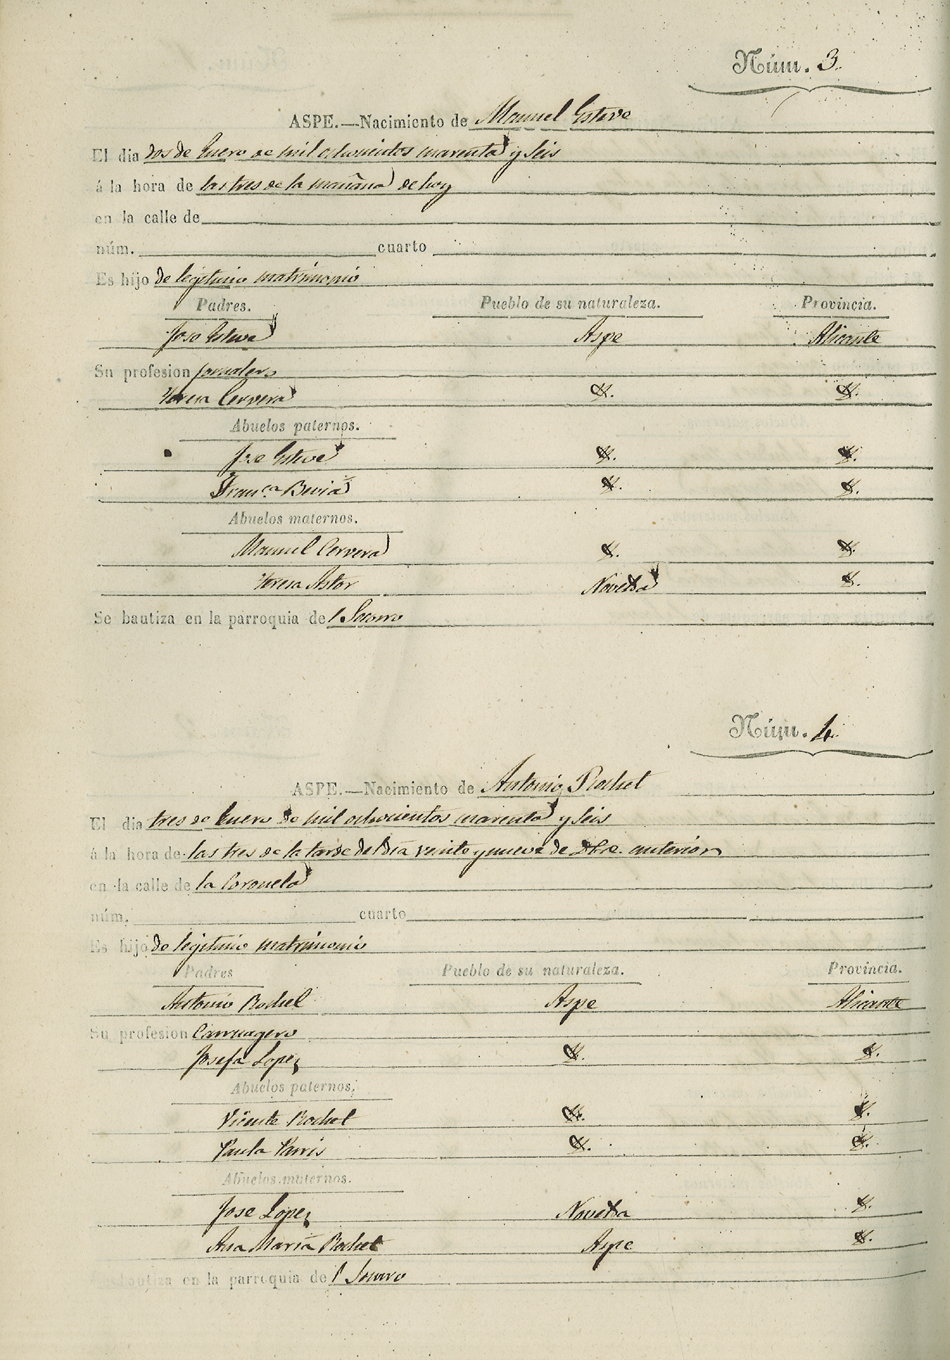 Núm. 3.
ASPE.—Nacimiento de Manuel Esteve
El dia dos de Enero de mil ochocientos cuarenta y seis
á la hora de las tres de la mañana de hoy
en la calle de
núm. cuarto
Es hijo de legitimo matrimonio
Padres. Pueblo de su naturaleza. Provincia.
Jose Esteve Aspe Alicante
Su profesion jornalero
Teresa Cervera Yd. Yd.
Abuelos paternos.
Jose Esteve Yd. Yd.
Franca Beviá Yd. Yd.
Abuelos maternos.
Manuel Cervera Yd. Yd.
Teresa Astor Novelda Yd.
Se bautiza en la parroquia del Socorro
Núm. 4.
ASPE.—Nacimiento de Antonio Rochel
El dia tres de Enero de mil ochocientos cuarenta y seis
á la hora de las tres de la tarde del dia veinte y nueve de Dbre. anterior
en la calle de la Coronela
núm. cuarto
Es hijo de legitimo matrimonio
Padres Pueblo de su naturaleza. Provincia.
Antonio Rochel Aspe Alicante
Su profesion Carruagero
Josefa Lopez Yd. Yd.
Abuelos paternos.
Vicente Rochel Yd. Yd.
Paula Parris Yd. Yd.
Abuelos maternos.
Jose Lopez Novelda Yd.
Ana Maria Rochel Aspe Yd.
bautiza en la parroquia del Socorro